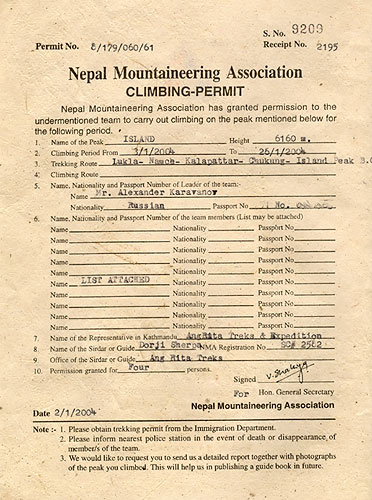 S. No. 9209
Permit No. 8/179/060/61 Receipt No. 2195
Nepal Mountaineering Association
CLIMBING-PERMIT
Nepal Mountaineering Association has granted permission to the
undermentioned team to carry out climbing on the peak mentioned below for
the following period.
1. Name of the Peak ISLAND Height 6160 m.
2. Climbing Period From 3/1/2004 To 25/1/2004
3. Trekking Route Lukla- Namche- Kalapattar- Chukung- Island Peak B.C
4. Climbing Route
5. Name, Nationality and Passport Number of Leader of the team:-
Name Mr. Alexander Karavanov
Nationality Russian Passport No No.
6. Name, Nationality and Passport Number of the team members (List may be attached)
Name Nationality Passport No
Name Nationality Passport No
Name Nationality Passport No
Name Nationality Passport No
Name Nationality Passport No
Name LIST ATTACHED Nationality Passport No
Name Nationality Passport No
Name Nationality Passport No
Name Nationality Passport No
7. Name of the Representative in Kathmandu AngRita Treks & Expedition
8. Name of the Sirdar or Guide Dorji Sherpa NMA Registration No SC# 2562
9. Office of the Sirdar or Guide Ang Rita Treks
10. Permission granted for Four persons.
Signed
For Hon. General Secretary
Nepal Mountaineering Association
Date 2/1/2004
Note :- 1. Please obtain trekking permit from the Immigration Department.
2. Please inform nearest police station in the event of death or disappearance of
member/s of the team.
3. We would like to request you to send us a detailed report together with photographs
of the peak you climbed. This will help us in publishing a guide book in future.